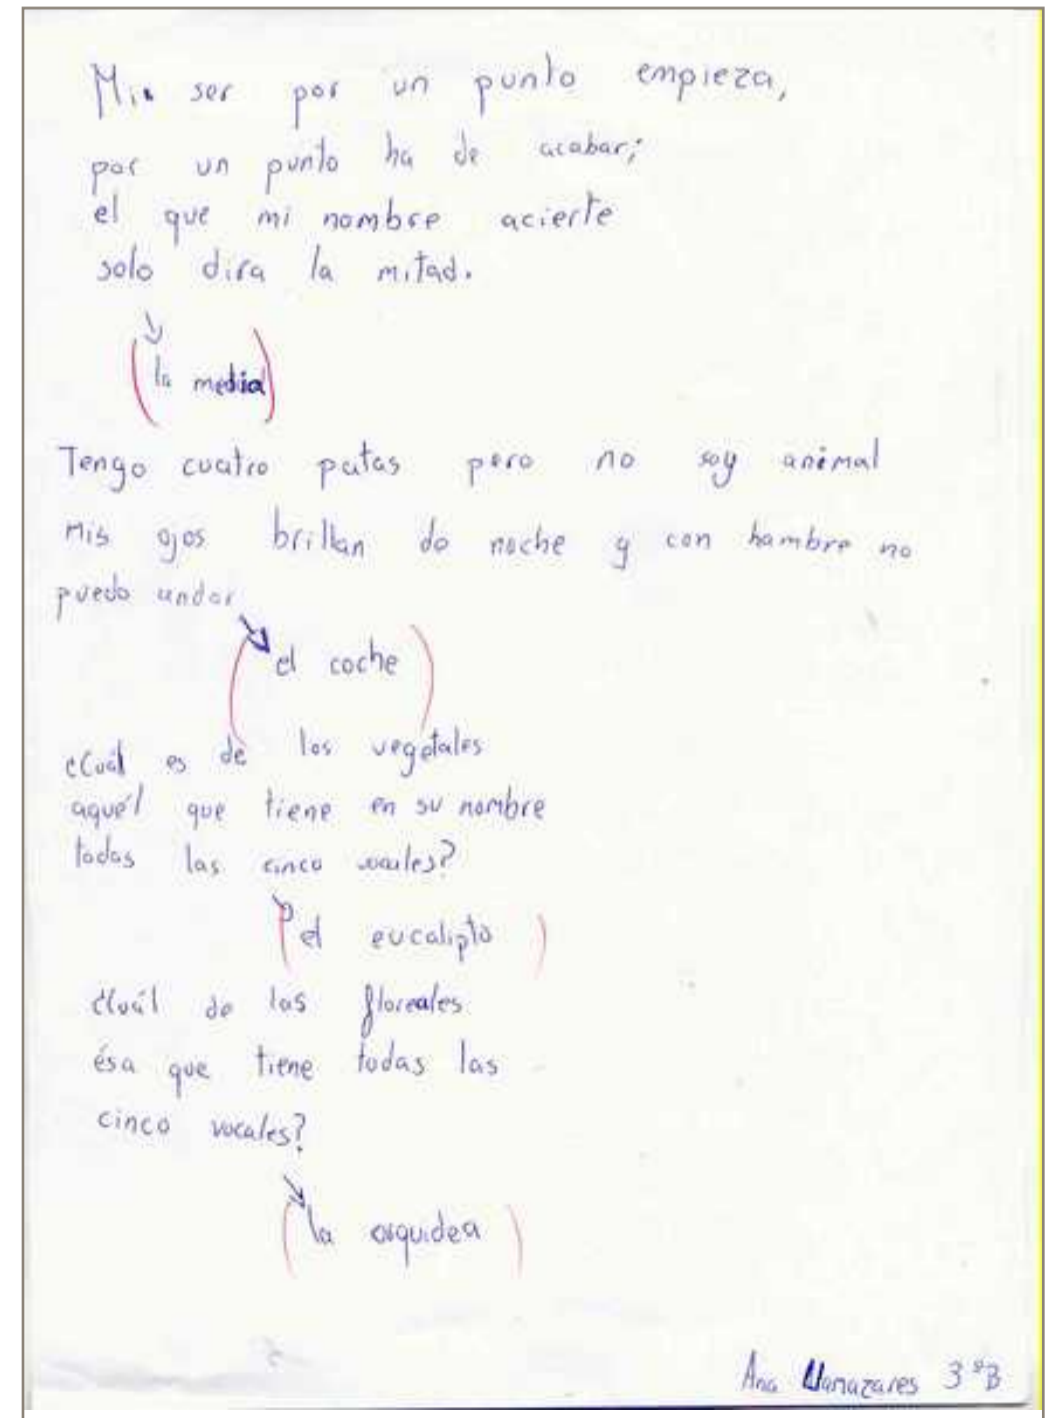 Mi ser por un punto empieza,
por un punto ha de acabar;
el que mi nombre acierte
solo dira la mitad.
(la media)
Tengo cuatro patas pero no soy animal
Mis ojos brillan de noche y con hambre no
puedo andar
(el coche)
¿Cuál es de los vegetales
aquél que tiene en su nombre
todas las cinco vocales?
(el eucalipto)
¿Cuál de las floreales
ésa que tiene todas las
cinco vocales?
(la orquidea)
Ana Llamazares 3ºB